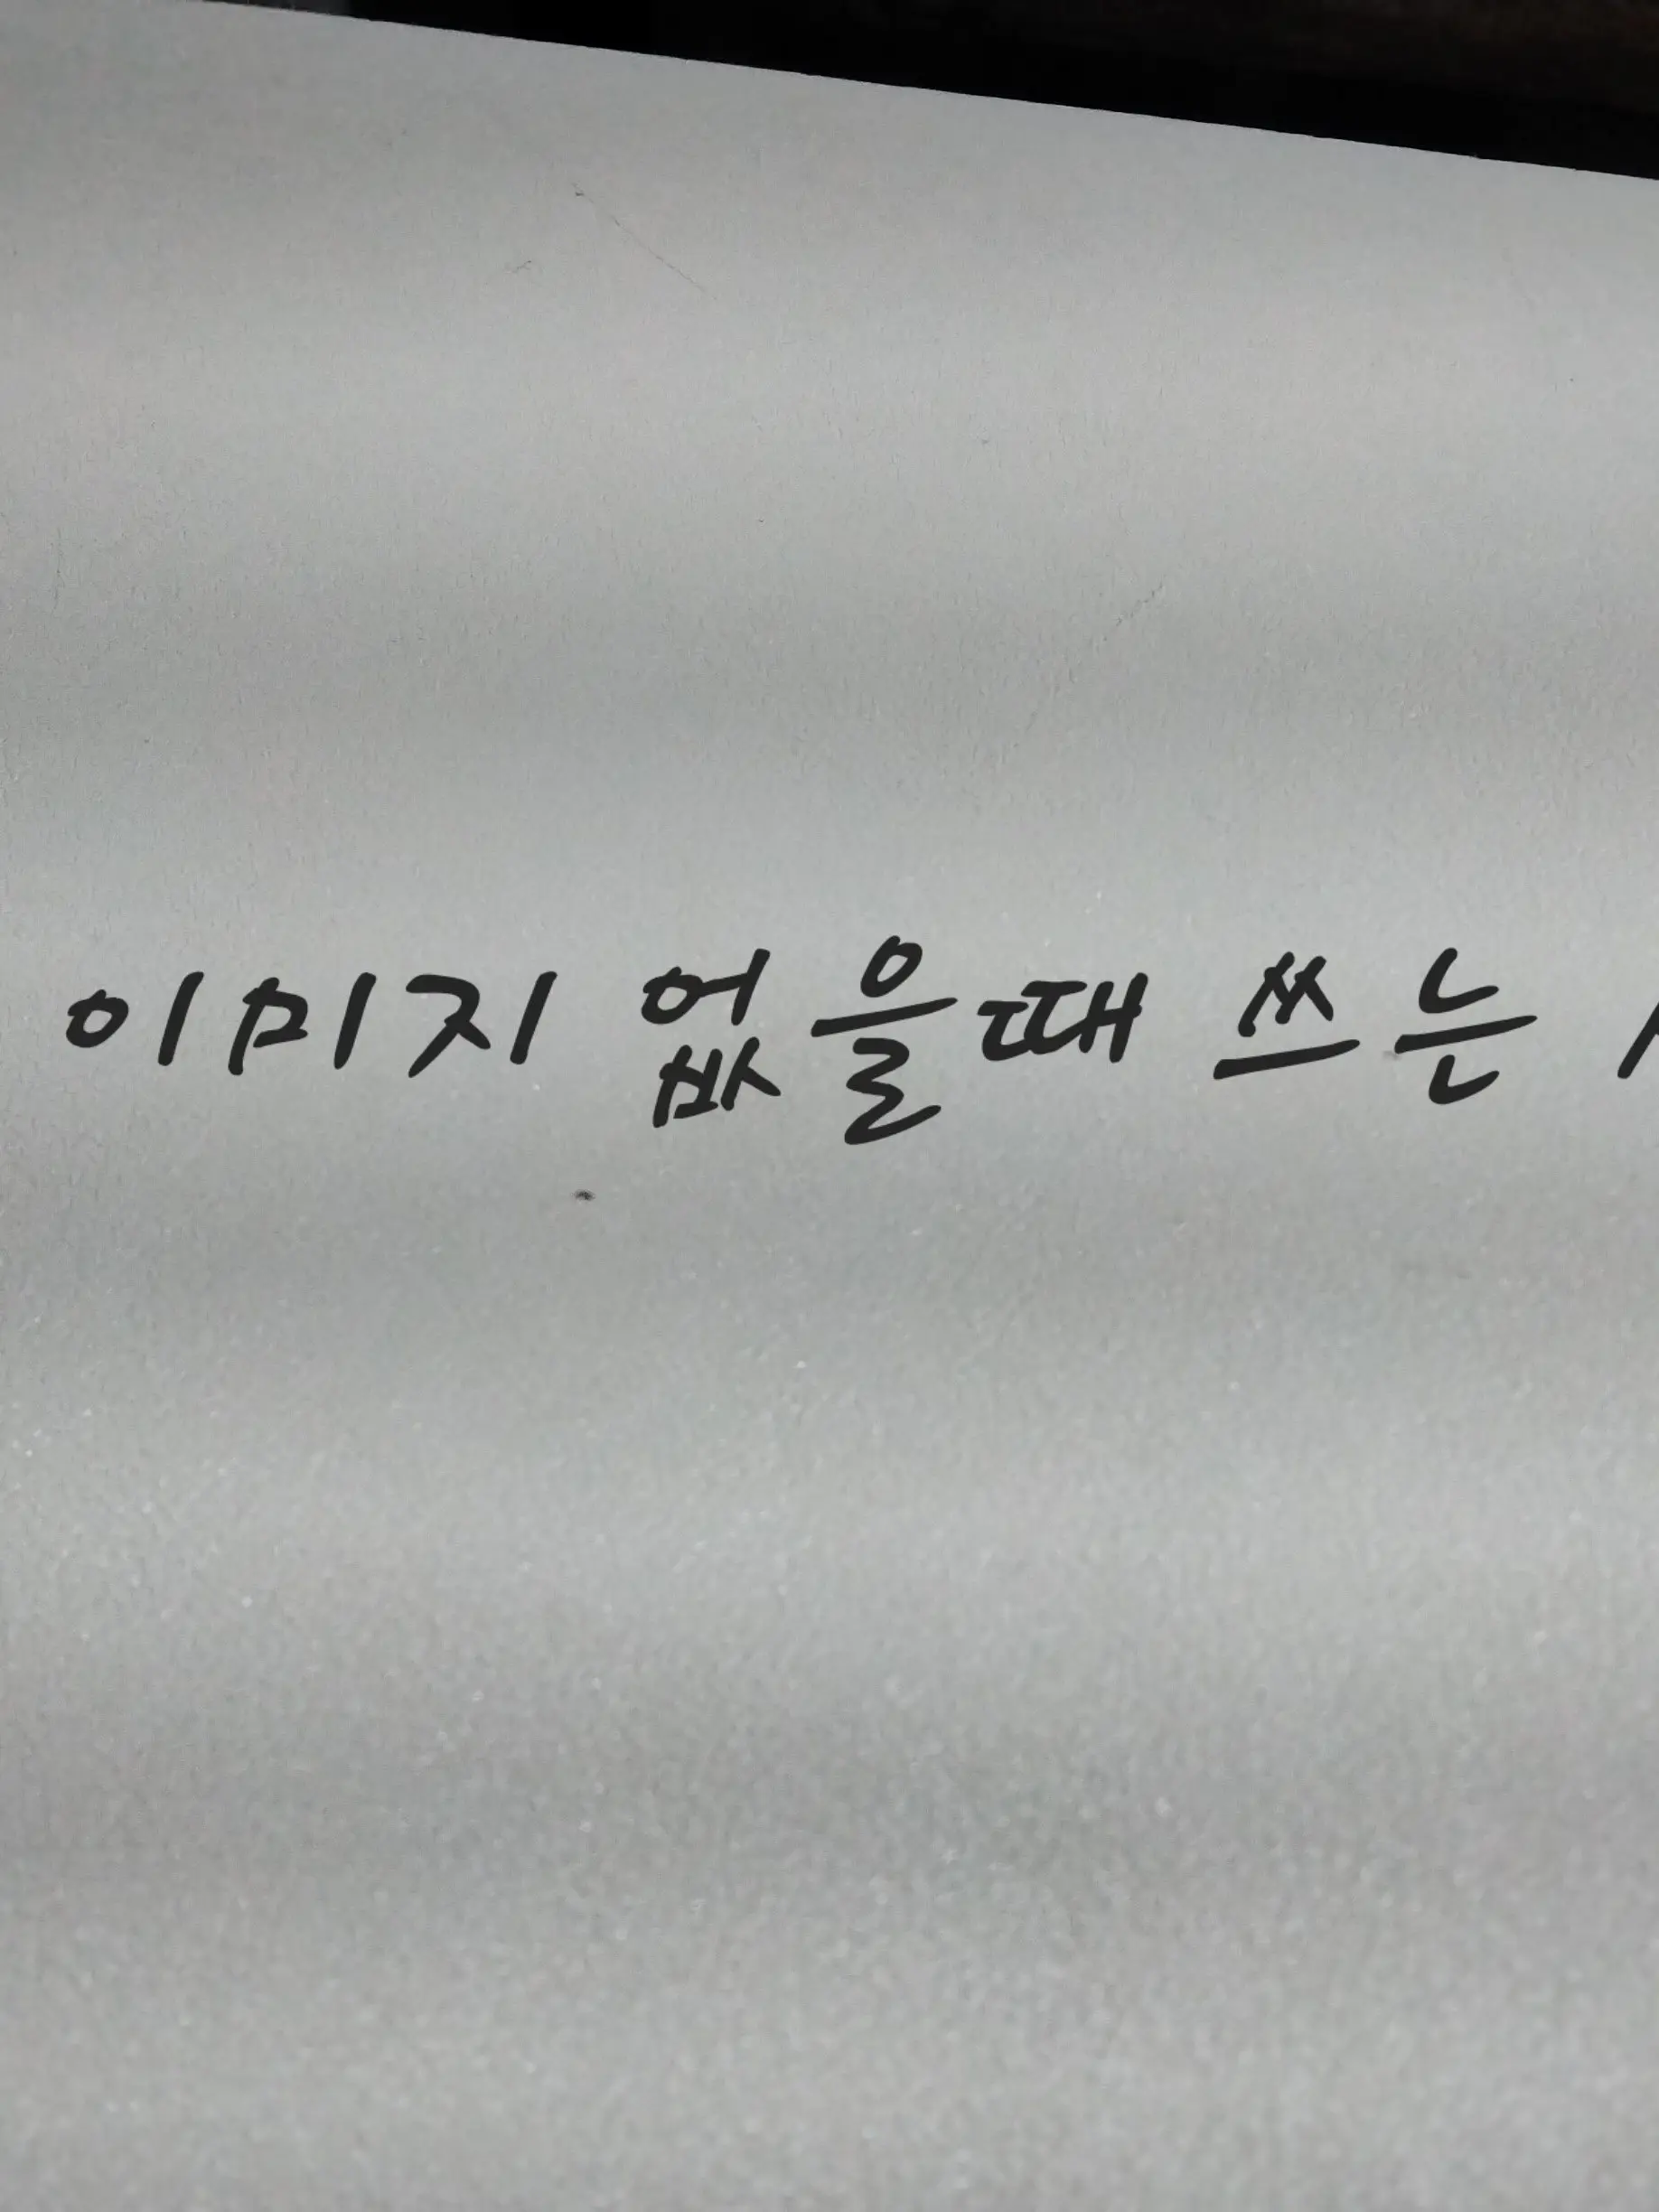 이미지 없을때 쓰는